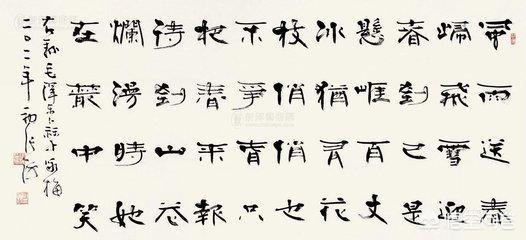 風雨送春
歸飛雪迎
春到已是
懸崖百丈
冰猶有花
枝俏俏也
不爭春只
把春來報
待到山花
爛漫時她
在叢中笑
右錄毛澤東卜算子咏梅
二〇一一年